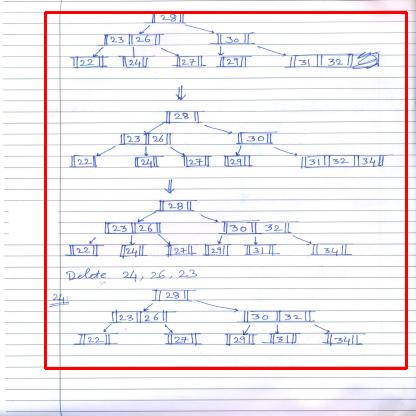 28
23 26 30
22 24 27 29 31 32
28
23 26 30
22 24 27 29 31 32 34
28
23 26 30 32
22 24 27 29 31 34
Delete 24, 26, 23
24 28
23 26 30 32
22 27 29 31 34